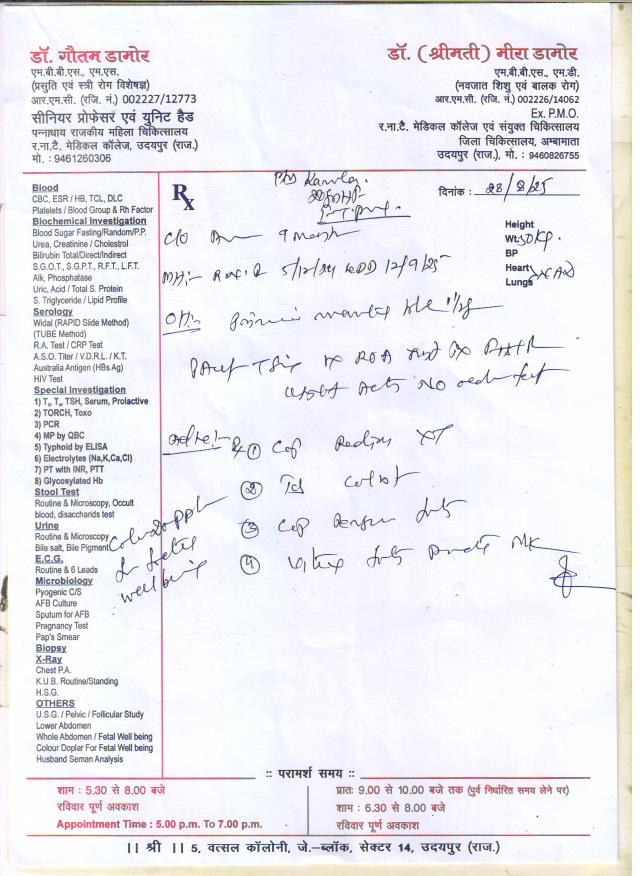 डॉ. गौतम डामोर
एम.बी.बी.एस., एम.एस.
(प्रसुति एवं स्त्री रोग विशेषज्ञ)
आर.एम.सी. (रजि. नं.) 002227/12773
सीनियर प्रोफेसर एवं युनिट हैड
पन्नाधाय राजकीय महिला चिकित्सालय
र.ना.टै. मेडिकल कॉलेज, उदयपुर (राज.)
मो. : 9461260306
डॉ. (श्रीमती) मीरा डामोर
एम.बी.बी.एस., एम.डी.
(नवजात शिशु एवं बालक रोग)
आर.एम.सी. (रजि. नं.) 002226/14062
Ex. P.M.O.
र.ना.टै. मेडिकल कॉलेज एवं संयुक्त चिकित्सालय
जिला चिकित्सालय, अम्बामाता
उदयपुर (राज.), मो. : 9460826755
Blood
CBC, ESR / HB, TCL, DLC
Platelets / Blood Group & Rh Factor
Biochemical Investigation
Blood Sugar Fasting/Random/P.P.
Urea, Creatinine / Cholestrol
Bilirubin Total/Direct/Indirect
S.G.O.T., S.G.P.T., R.F.T., L.F.T.
Alk, Phosphatase
Uric, Acid / Total S. Protein
S. Triglyceride / Lipid Profile
Serology
Widal (RAPID Slide Method)
(TUBE Method)
R.A. Test / CRP Test
A.S.O. Titer / V.D.R.L. / K.T.
Australia Antigen (HBs Ag)
HIV Test
Special Investigation
1) T3, T4, TSH, Serum, Prolactive
2) TORCH, Toxo
3) PCR
4) MP by QBC
5) Typhoid by ELISA
6) Electrolytes (Na,K,Ca,Cl)
7) PT with INR, PTT
8) Glycosylated Hb
Stool Test
Routine & Microscopy, Occult
blood, disaccharids test
Urine
Routine & Microscopy
Bile salt, Bile Pigment
E.C.G.
Routine & 6 Leads
Microbiology
Pyogenic C/S
AFB Culture
Sputum for AFB
Pregnancy Test
Pap's Smear
Biopsy
X-Ray
Chest P.A.
K.U.B. Routine/Standing
H.S.G.
OTHERS
U.S.G. / Pelvic / Follicular Study
Lower Abdomen
Whole Abdomen / Fetal Well being
Colour Doplar For Fetal Well being
Husband Seman Analysis
Rx
Kamla
दिनांक : 28/8/25
Height
Wt. 50 Kg.
BP
Heart
Lungs NAD
C/O 9 month
MH:- 5/12/24 EDD 12/9/25
OH:-
NO
Adv:-
Rx ① Cap XT
②
③ Cap
④
Colour Doppler
for fetal
well being
:: परामर्श समय ::
शाम : 5.30 से 8.00 बजे
रविवार पूर्ण अवकाश
Appointment Time : 5.00 p.m. To 7.00 p.m.
प्रातः 9.00 से 10.00 बजे तक (पुर्व निर्धारित समय लेने पर)
शाम : 6.30 से 8.00 बजे
रविवार पूर्ण अवकाश
।। श्री ।। 5, वत्सल कॉलोनी, जे.–ब्लॉक, सेक्टर 14, उदयपुर (राज.)